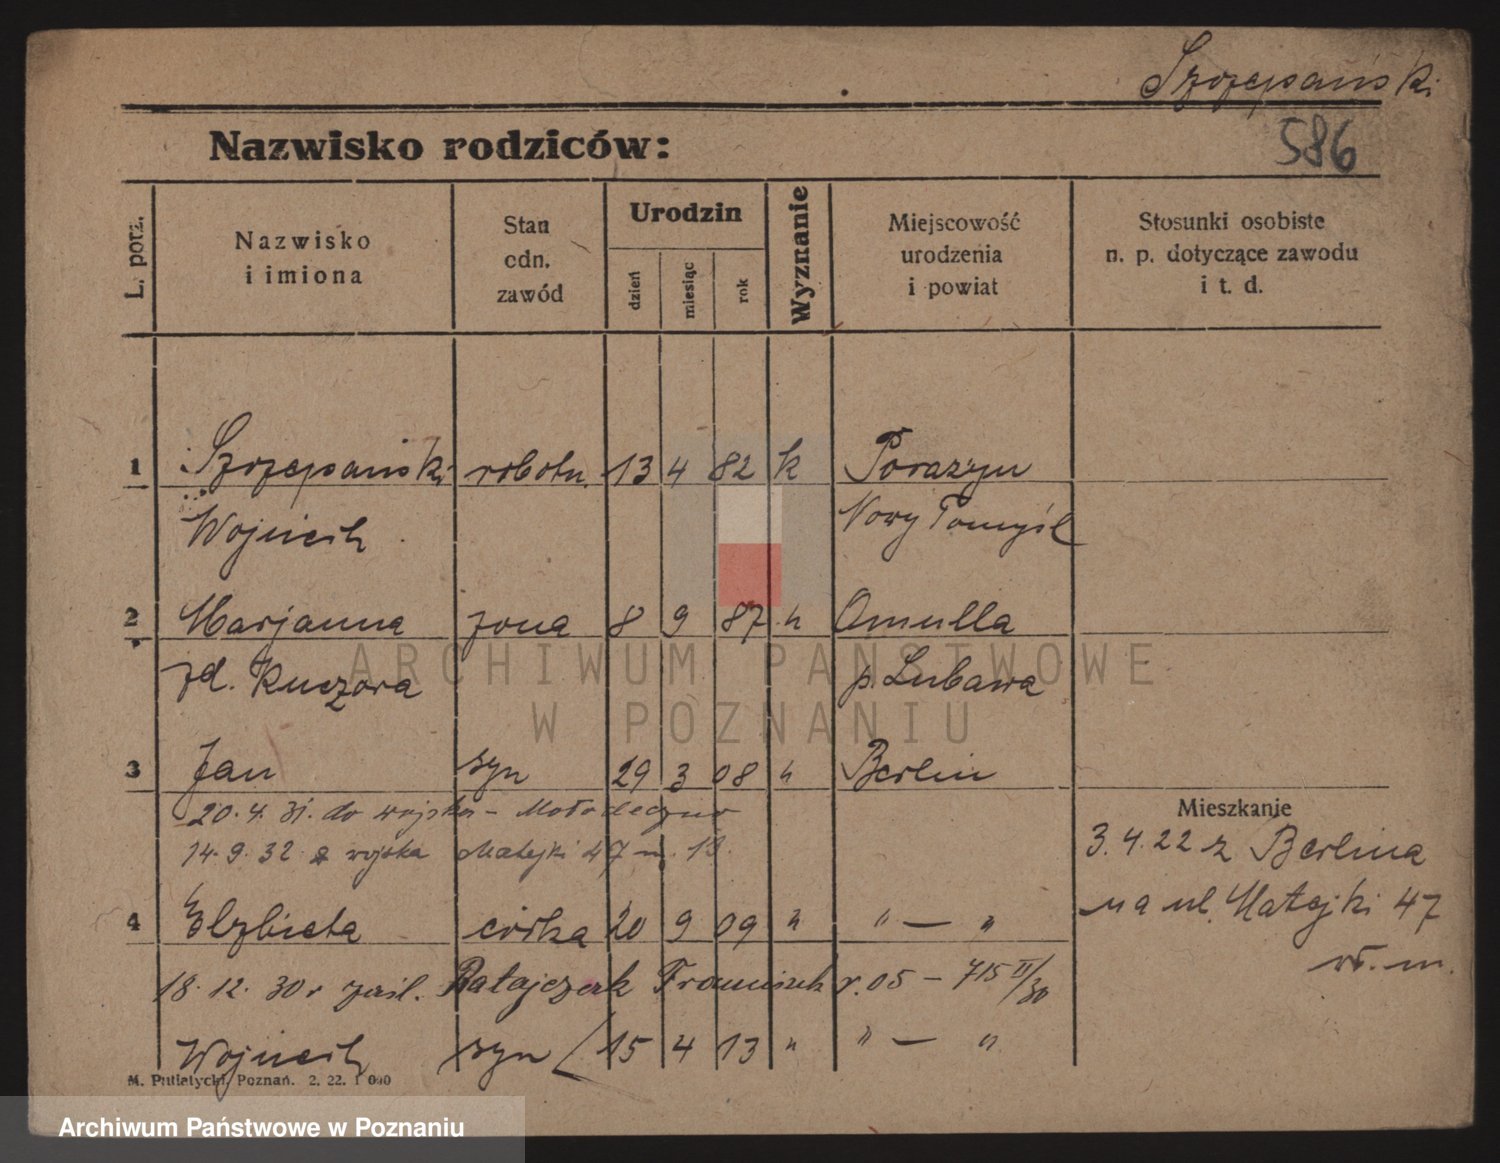 Szczepański
586
Nazwisko rodziców:
L. porz.
Nazwisko
i imiona
Stan
odn.
zawód
Urodzin
dzień
miesiąc
rok
Wyznanie
Miejscowość
urodzenia
i powiat
Stosunki osobiste
n. p. dotyczące zawodu
i t. d.
1 Szczepański robotn. 13 4 82 k Porażyn
Wojciech Nowy Tomyśl
2 Marjanna żona 8 9 87 " Omulla
zd. Kuczora p. Lubawa
3 Jan syn 29 3 08 " Berlin
20.4.31. do wojska - Mołodeczno
14.9.32 z wojska Matejki 47 m. 13.
Mieszkanie
3.4.22 z Berlina
na ul. Matejki 47
wł. m.
4 Elżbieta córka 20 9 09 " " — "
18.12.30 r zaśl. Ratajczak Franciszek r. 05 - 715 II/30
Wojciech syn 15 4 13 " " — "
M. Putiatycki, Poznań. 2. 22. 1 000
ARCHIWUM PAŃSTWOWE
W POZNANIU
Archiwum Państwowe w Poznaniu